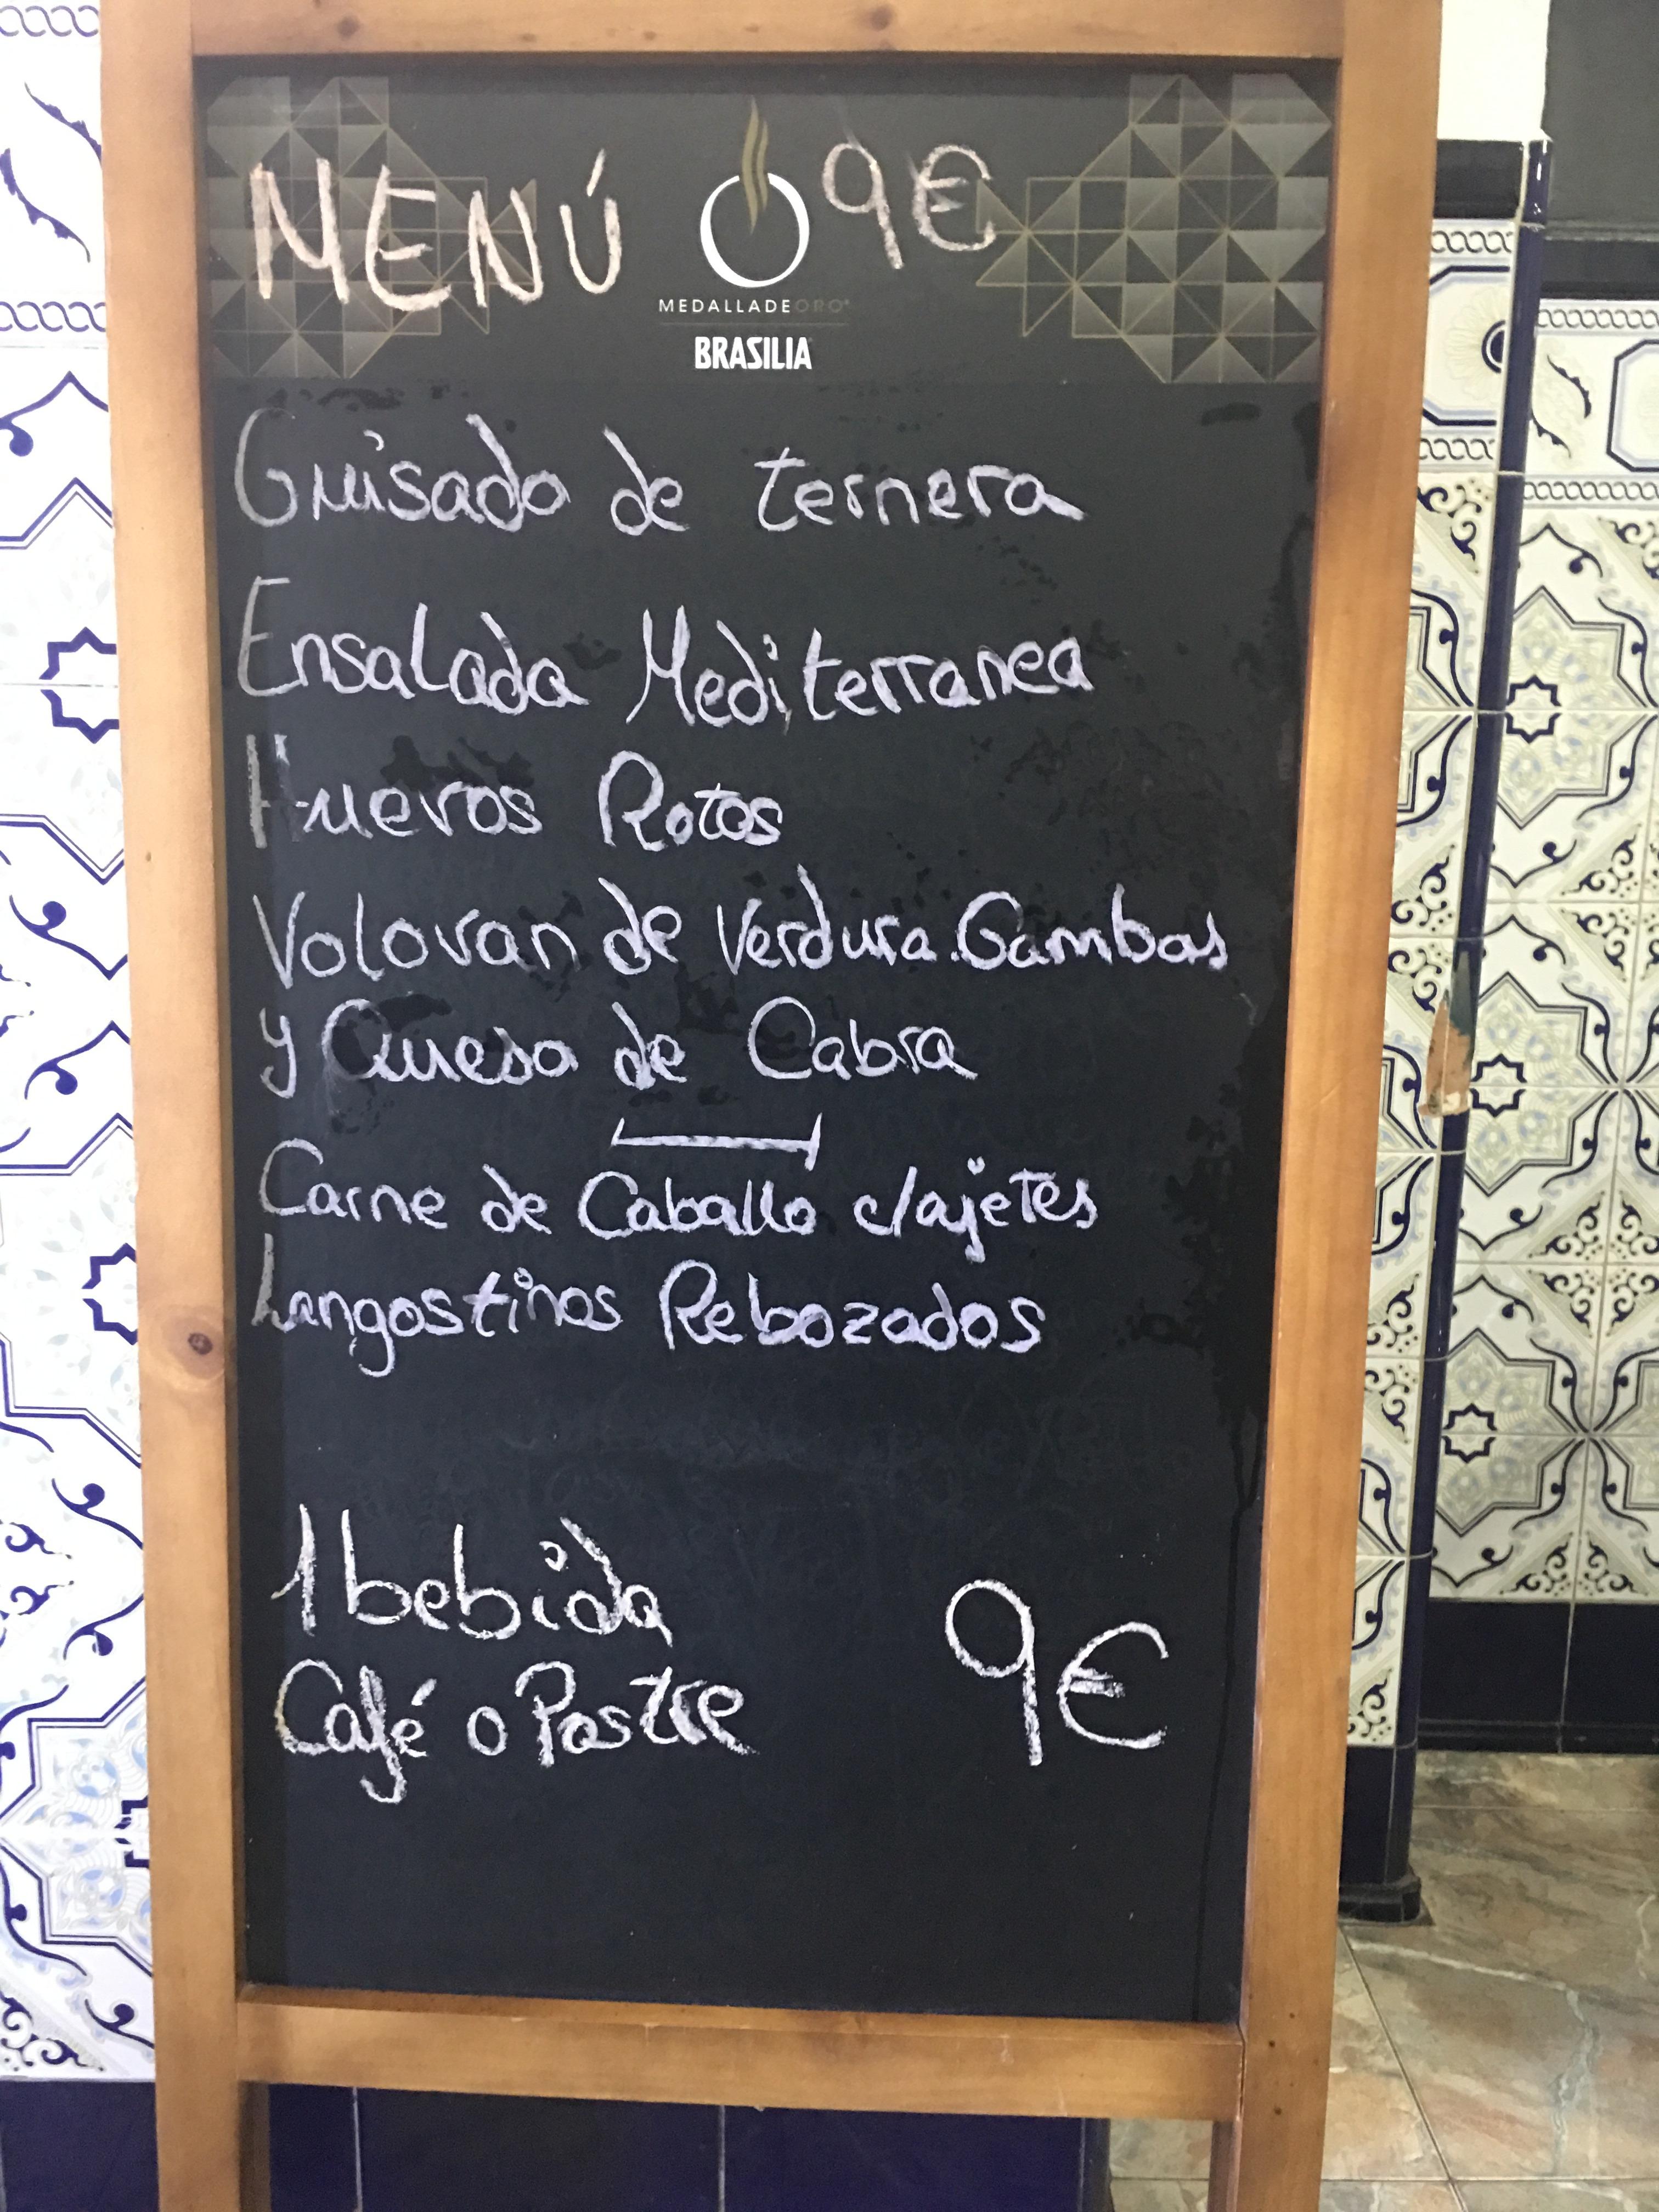 MENÚ 9€
MEDALLADEORO®
BRASILIA
Guisado de ternera
Ensalada Mediterranea
Huevos Rotos
Volovan de Verdura.Gambas
y Queso de Cabra
Carne de Caballo c/ajetes
Langostinos Rebozados
1 bebida
Café o Postre 9€